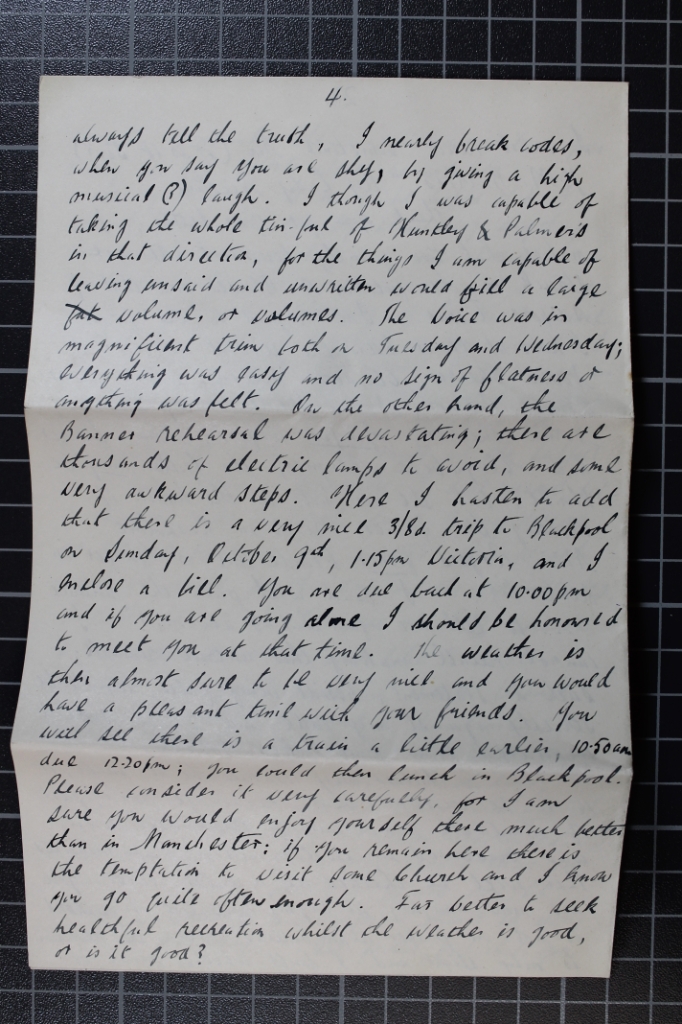 4.
always tell the truth, I nearly break codes,
when you say you are shy, by giving a high
musical (?) laugh. I though I was capable of
taking the whole tin-full of Huntley & Palmers
in that direction, for the things I am capable of
leaving unsaid and unwritten would fill a large
volume, or volumes. The Voice was in
magnificent trim both on Tuesday and Wednesday;
everything was easy and no sign of flatness or
anything was felt. On the other hand, the
Banner rehearsal was devastating; there are
thousands of electric lamps to avoid, and some
very awkward steps. Here I hasten to add
that there is a very nice 3/8d. trip to Blackpool
on Sunday, October 9th, 1.15pm Victoria, and I
enclose a bill. You are due back at 10.00pm
and if you are going alone I should be honoured
to meet you at that time. The weather is
then almost sure to be very nice and you would
have a pleasant time with your friends. You
will see there is a train a little earlier, 10.50am
due 12.20pm; you could then lunch in Blackpool.
Please consider it very carefully, for I am
sure you would enjoy yourself there much better
than in Manchester; if you remain here there is
the temptation to visit some Church and I know
you go quite often enough. Far better to seek
healthful recreation whilst the weather is good,
or is it good?